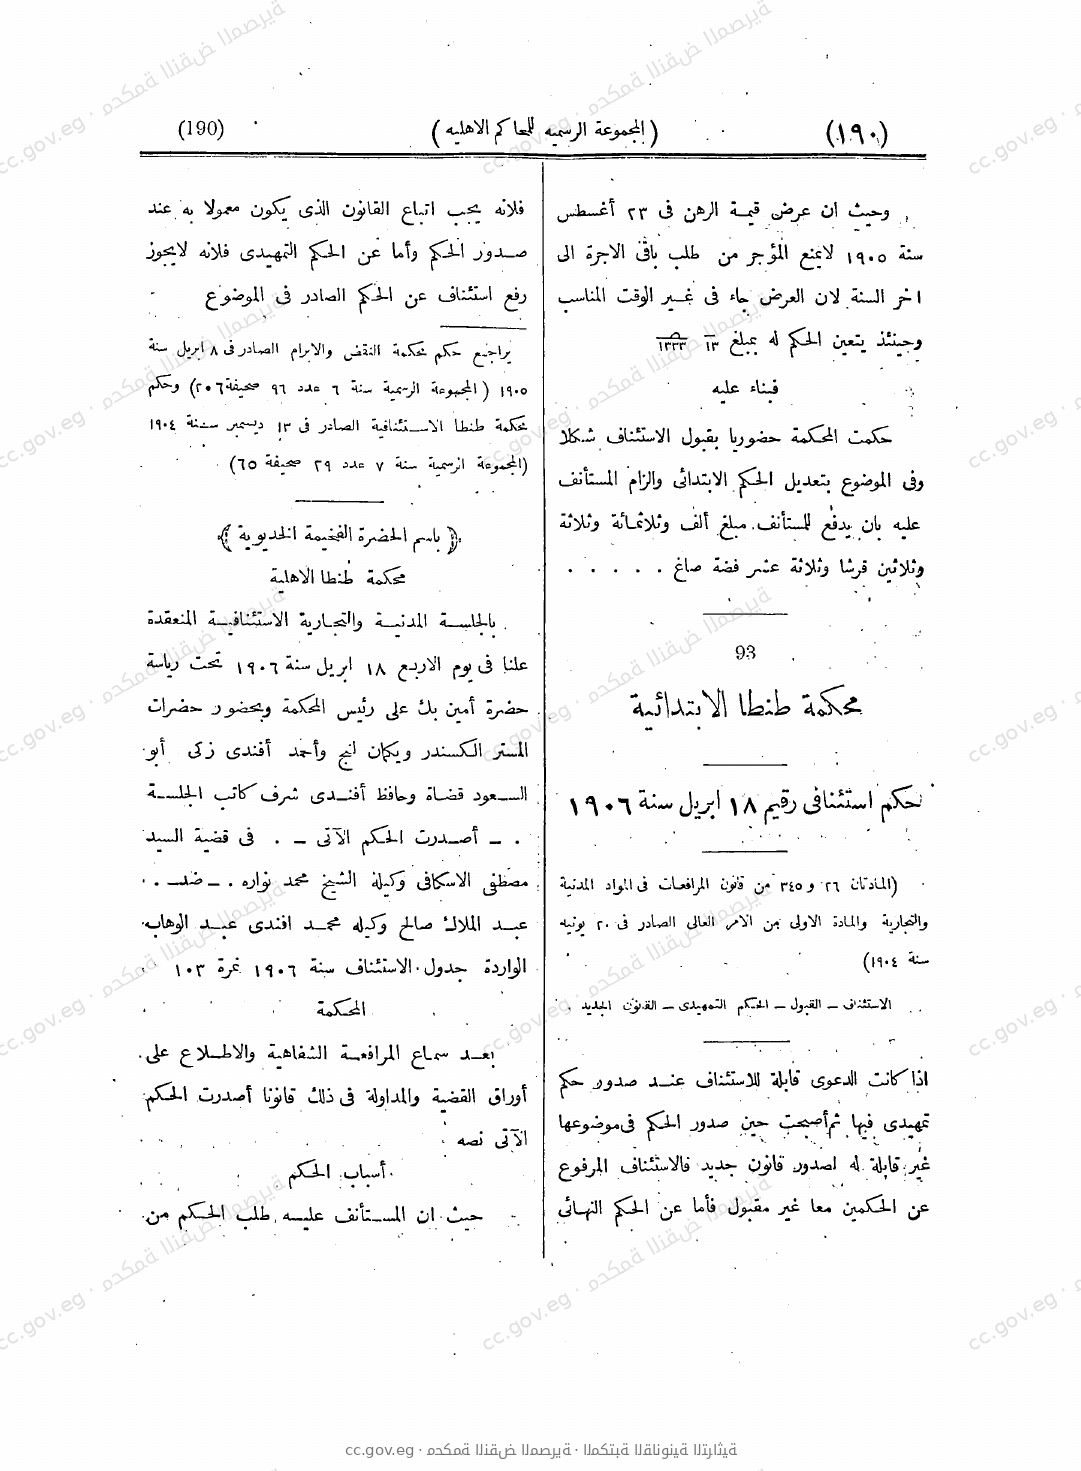 (١٩٠)
(المجموعة الرسمية للمحاكم الاهليه)
(190)
وحيث ان عرض قيمة الرهن فى ٢٣ أغسطس
سنة ١٩٠٥ لايمنع المؤجر من طلب باقى الاجرة الى
اخر السنة لان العرض جاء فى غير الوقت المناسب
وحينئذ يتعين الحكم له بمبلغ ١٣ ١٣٣٣
فبناء عليه
حكمت المحكمة حضوريا بقبول الاستئناف شكلا
وفى الموضوع بتعديل الحكم الابتدائى والزام المستأنف
عليه بان يدفع للمستأنف مبلغ ألف وثلاثمائة وثلاثة
وثلاثين قرشا وثلاثة عشر فضة صاغ . . . . .
93
محكمة طنطا الابتدائية
حكم استئنافى رقيم ١٨ ابريل سنة ١٩٠٦
(المادتان ٢٦ و ٣٤٥ من قانون المرافعات فى المواد المدنية
والتجارية والمادة الاولى من الامر العالى الصادر فى ٢٠ يونيه
سنة ١٩٠٤)
الاستئناف – القبول – الحكم التمهيدى – القانون الجديد .
اذا كانت الدعوى قابلة للاستئناف عند صدور حكم
تمهيدى فيها ثم أصبحت حين صدور الحكم فى موضوعها
غير قابلة له لصدور قانون جديد فالاستئناف المرفوع
عن الحكمين معا غير مقبول فأما عن الحكم النهائى
فلانه يجب اتباع القانون الذى يكون معمولا به عند
صدور الحكم وأما عن الحكم التمهيدى فلانه لايجوز
رفع استئناف عن الحكم الصادر فى الموضوع
يراجع حكم محكمة النقض والابرام الصادر فى ٨ ابريل سنة
١٩٠٥ (المجموعة الرسمية سنة ٦ عدد ٩٦ صحيفة ٢٠٦) وحكم
محكمة طنطا الاستئنافية الصادر فى ١٣ ديسمبر سنة ١٩٠٤
(المجموعة الرسمية سنة ٧ عدد ٢٩ صحيفة ٦٥) .
﴿ باسم الحضرة الفخيمة الخديوية ﴾
محكمة طنطا الاهلية
بالجلسة المدنية والتجارية الاستئنافية المنعقدة
علنا فى يوم الاربع ١٨ ابريل سنة ١٩٠٦ تحت رياسة
حضرة أمين بك على رئيس المحكمة وبحضور حضرات
المستر الكسندر ويكمان لنج وأحمد أفندى زكى أبو
السعود قضاة وحافظ أفندى شرف كاتب الجلسة
. – أصدرت الحكم الآتى – . فى قضية السيد
مصطفى الاسكافى وكيله الشيخ محمد نواره . – ضد – .
عبد الملاك صالح وكيله محمد افندى عبد الوهاب
الواردة جدول الاستئناف سنة ١٩٠٦ نمرة ١٠٣
المحكمة
بعد سماع المرافعة الشفاهية والاطلاع على
أوراق القضية والمداولة فى ذلك قانونا أصدرت الحكم
الآتى نصه
أسباب الحكم
حيث ان المستأنف عليه طلب الحكم من
cc.gov.eg · محكمة النقض المصرية · المكتبة القانونية التراثية